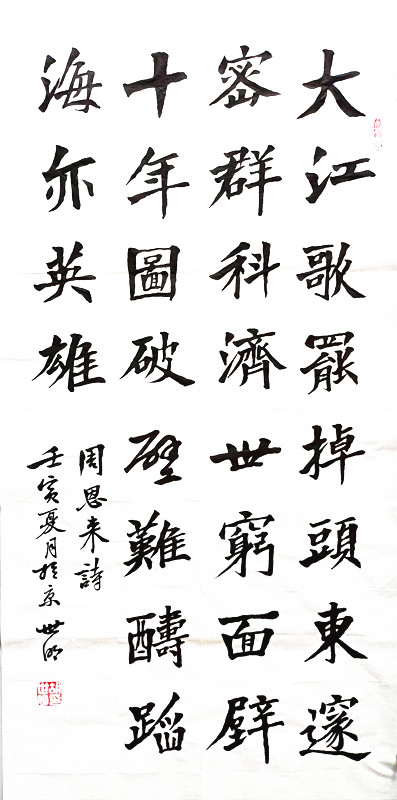 大江歌罷掉頭東邃
密群科濟世窮面壁
十年圖破壁難醻蹈
海亦英雄
周恩来詩
壬寅夏月於京世